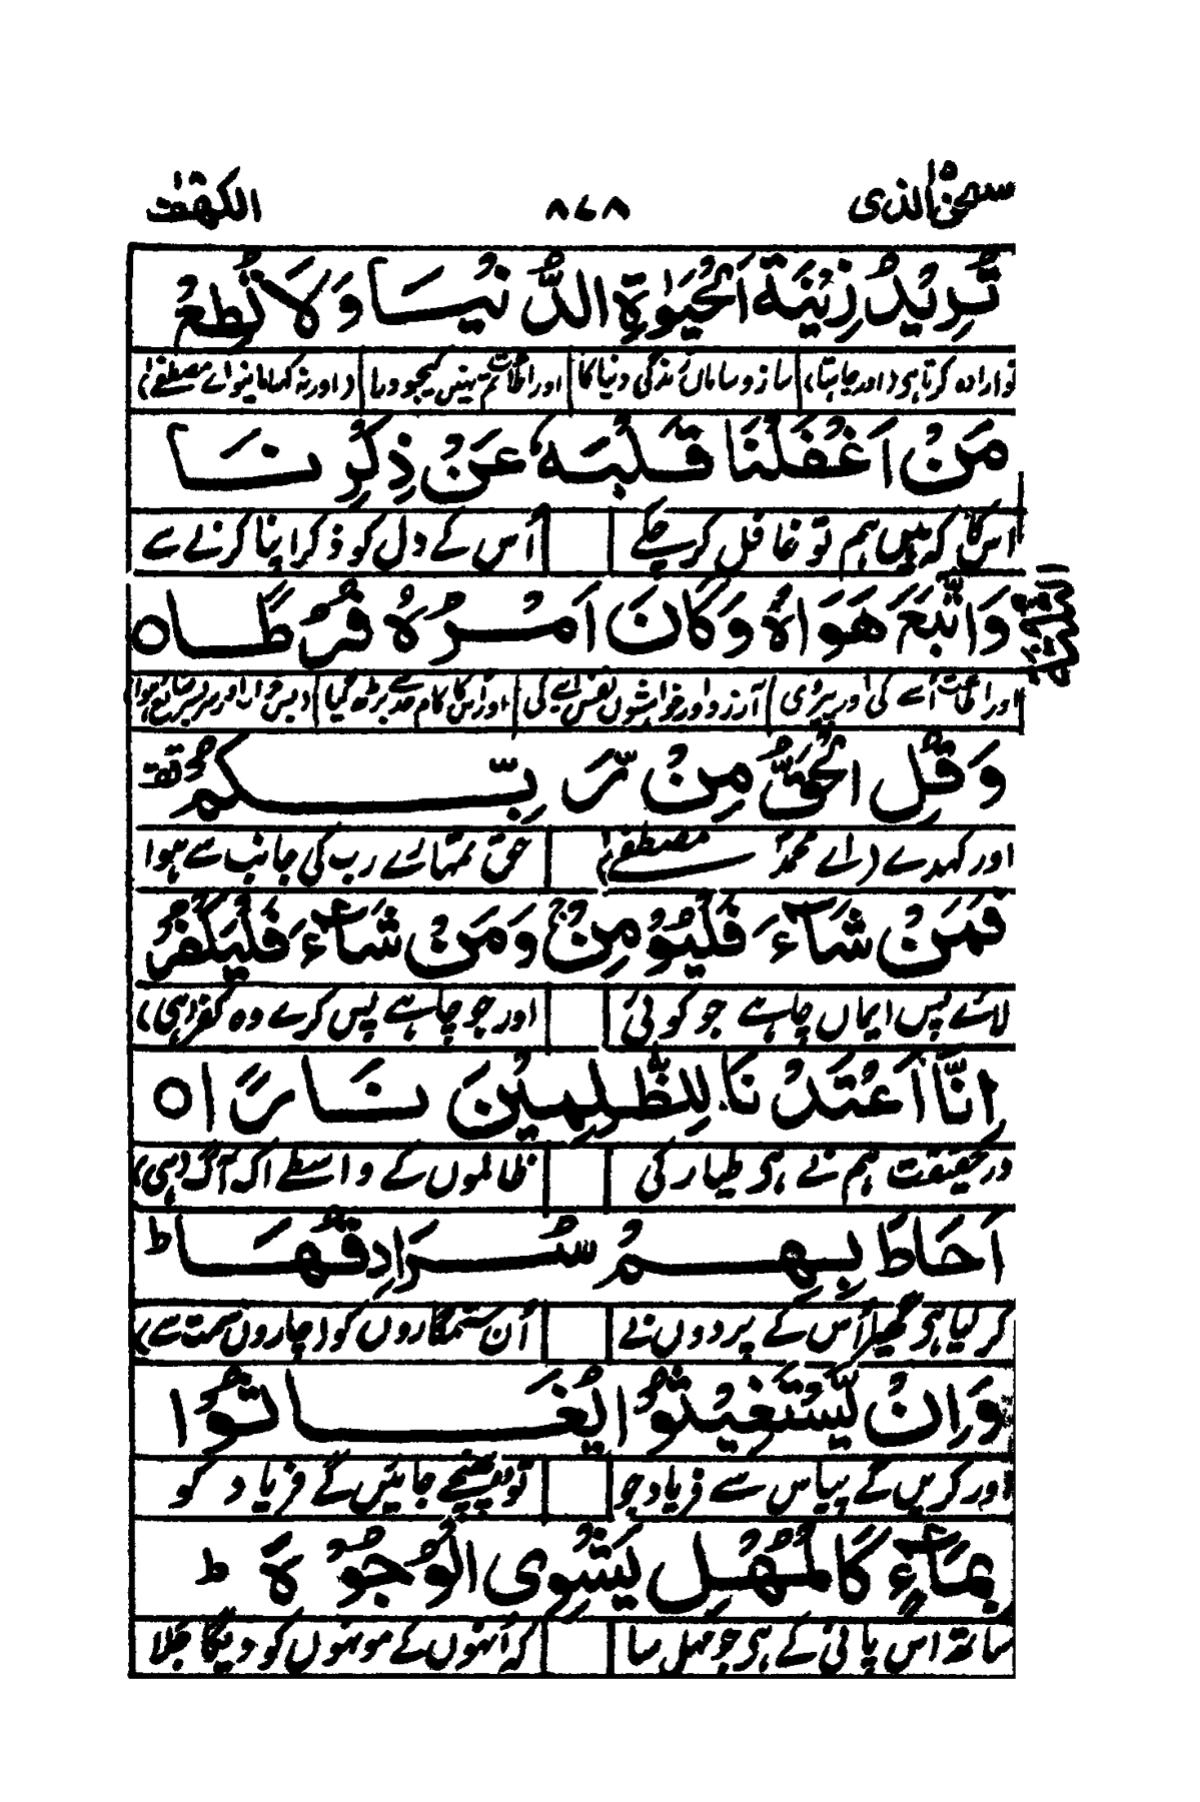 سبحٰن الذی ۸۷۸ الکھف
تُرِيْدُ زِيْنَةَ الْحَيٰوةِ الدُّنْيَا وَلَا تُطِعْ
تو ارادہ کرتا ہی (اور چاہتا) سازوسامان زندگی دنیا کا اور اطاعت تم نہیں کیجیو (اور نہ کہا مانیو اے مصطفےٰ)
مَنْ اَغْفَلْنَا قَلْبَهٗ عَنْ ذِكْرِنَا
اس کا کہ ہیں ہم تو غافل کر چکے اُس کے دل کو ذکر اپنا کرنے سے
وَاتَّبَعَ هَوَاهُ وَكَانَ اَمْرُهٗ فُرُطًا ○
اور اطاعت اُسے کی اور پیروی آرزو اور خواہشوں نفس اپنے کی اور اُس کا کام حد سے بڑھ گیا
وَقُلِ الْحَقُّ مِنْ رَّبِّكُمْ قف
اور کہدے (اے محمدؐ مصطفےٰ) حق تمہارے رب کی جانب سے ہوا
فَمَنْ شَآءَ فَلْيُؤْمِنْ وَمَنْ شَآءَ فَلْيَكْفُرْ
لائے پس ایماں چاہے جو کوئی اور جو چاہے پس کرے وہ کفر ہی)
اِنَّا اَعْتَدْنَا لِلظّٰلِمِيْنَ نَارًا ○
درحقیقت ہم نے ہی طیار کی ظالموں کے واسطے اک آگ (ہی)
اَحَاطَ بِهِمْ سُرَادِقُهَا ط
کر لیا ہی گھیر اُس کے پردوں نے اُن ستمگاروں کو (چاروں سمت سے)
وَاِنْ يَّسْتَغِيْثُوْا يُغَاثُوْا
اور کریں گے پیاس سے فریاد جو تو پہنچے جائیں گے فریاد کو
بِمَآءٍ كَالْمُهْلِ يَشْوِى الْوُجُوْهَ ط
ساتھ اس پانی کے ہی جو مہل سا کہ اُنہوں کے مونہوں کو دیگا جلا